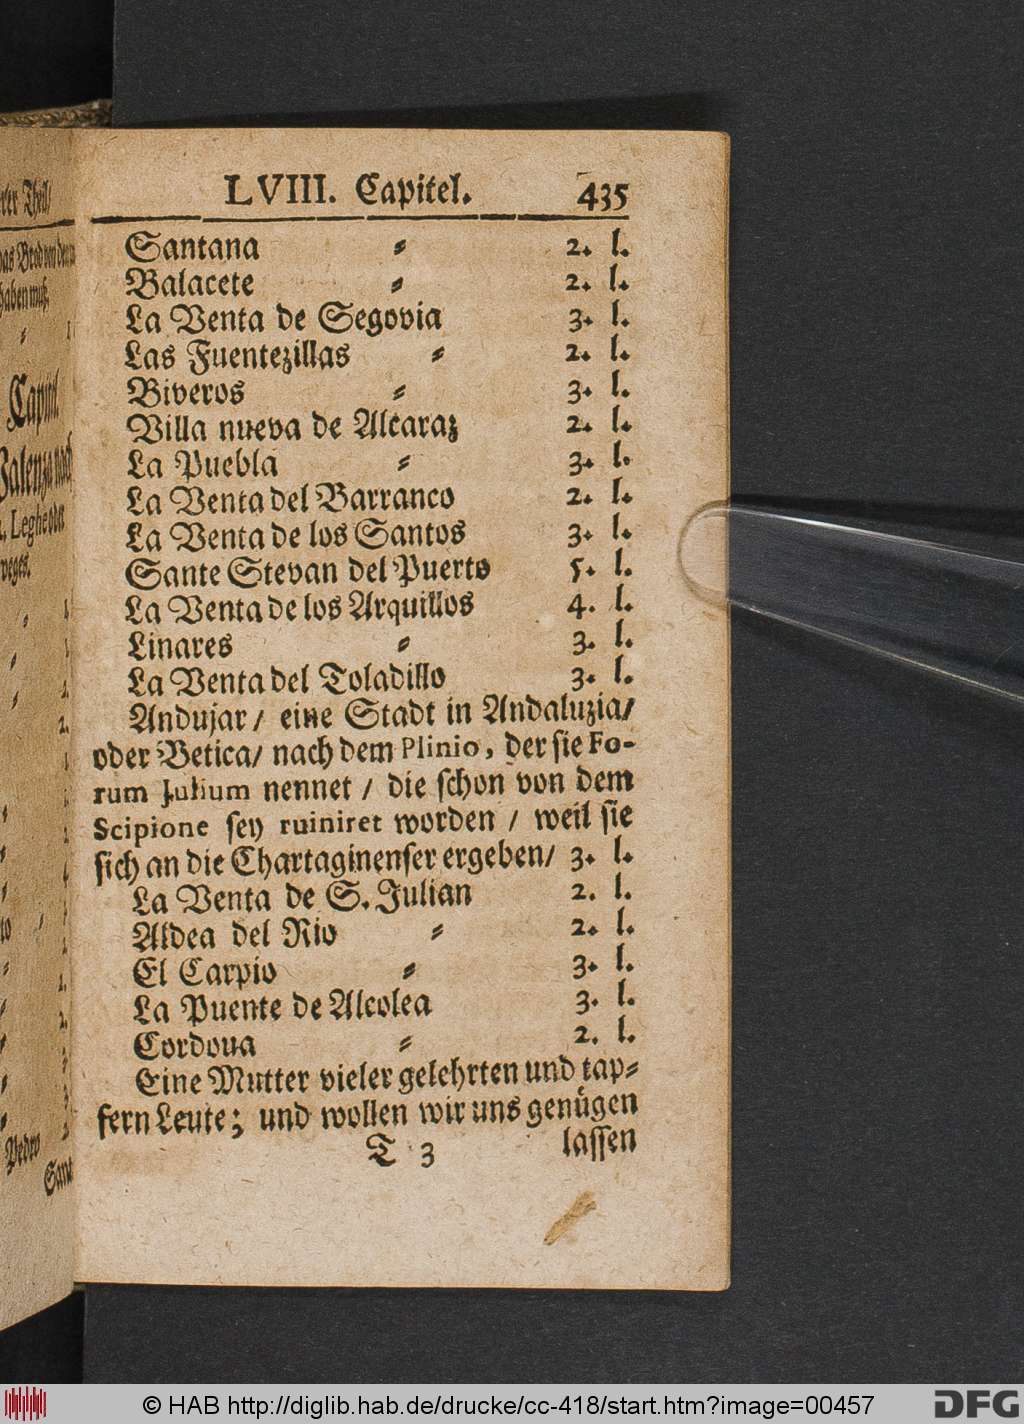 LVIII. Capitel. 435
Santana ⸗ 2. l.
Balacete ⸗ 2. l.
La Venta de Segovia 3. l.
Las Fuentezillas ⸗ 2. l.
Biveros ⸗ 3. l.
Villa nueva de Alcaraz 2. l.
La Puebla ⸗ 3. l.
La Venta del Barranco 2. l.
La Venta de los Santos 3. l.
Sante Stevan del Puerto 5. l.
La Venta de los Arquillos 4. l.
Linares ⸗ 3. l.
La Venta del Toladillo 3. l.
Andujar / eine Stadt in Andaluzia/
oder Betica/ nach dem Plinio, der sie Fo-
rum Julium nennet / die schon von dem
Scipione sey ruiniret worden / weil sie
sich an die Chartaginenser ergeben/ 3. l.
La Venta de S. Julian 2. l.
Aldea del Rio ⸗ 2. l.
El Carpio ⸗ 3. l.
La Puente de Alcolea 3. l.
Cordoua ⸗ 2. l.
Eine Mutter vieler gelehrten und tap⸗
fern Leute; und wollen wir uns genügen
T 3 lassen
Capitel
Leghe oder
weges.
Pedro
© HAB http://diglib.hab.de/drucke/cc-418/start.htm?image=00457
DFG